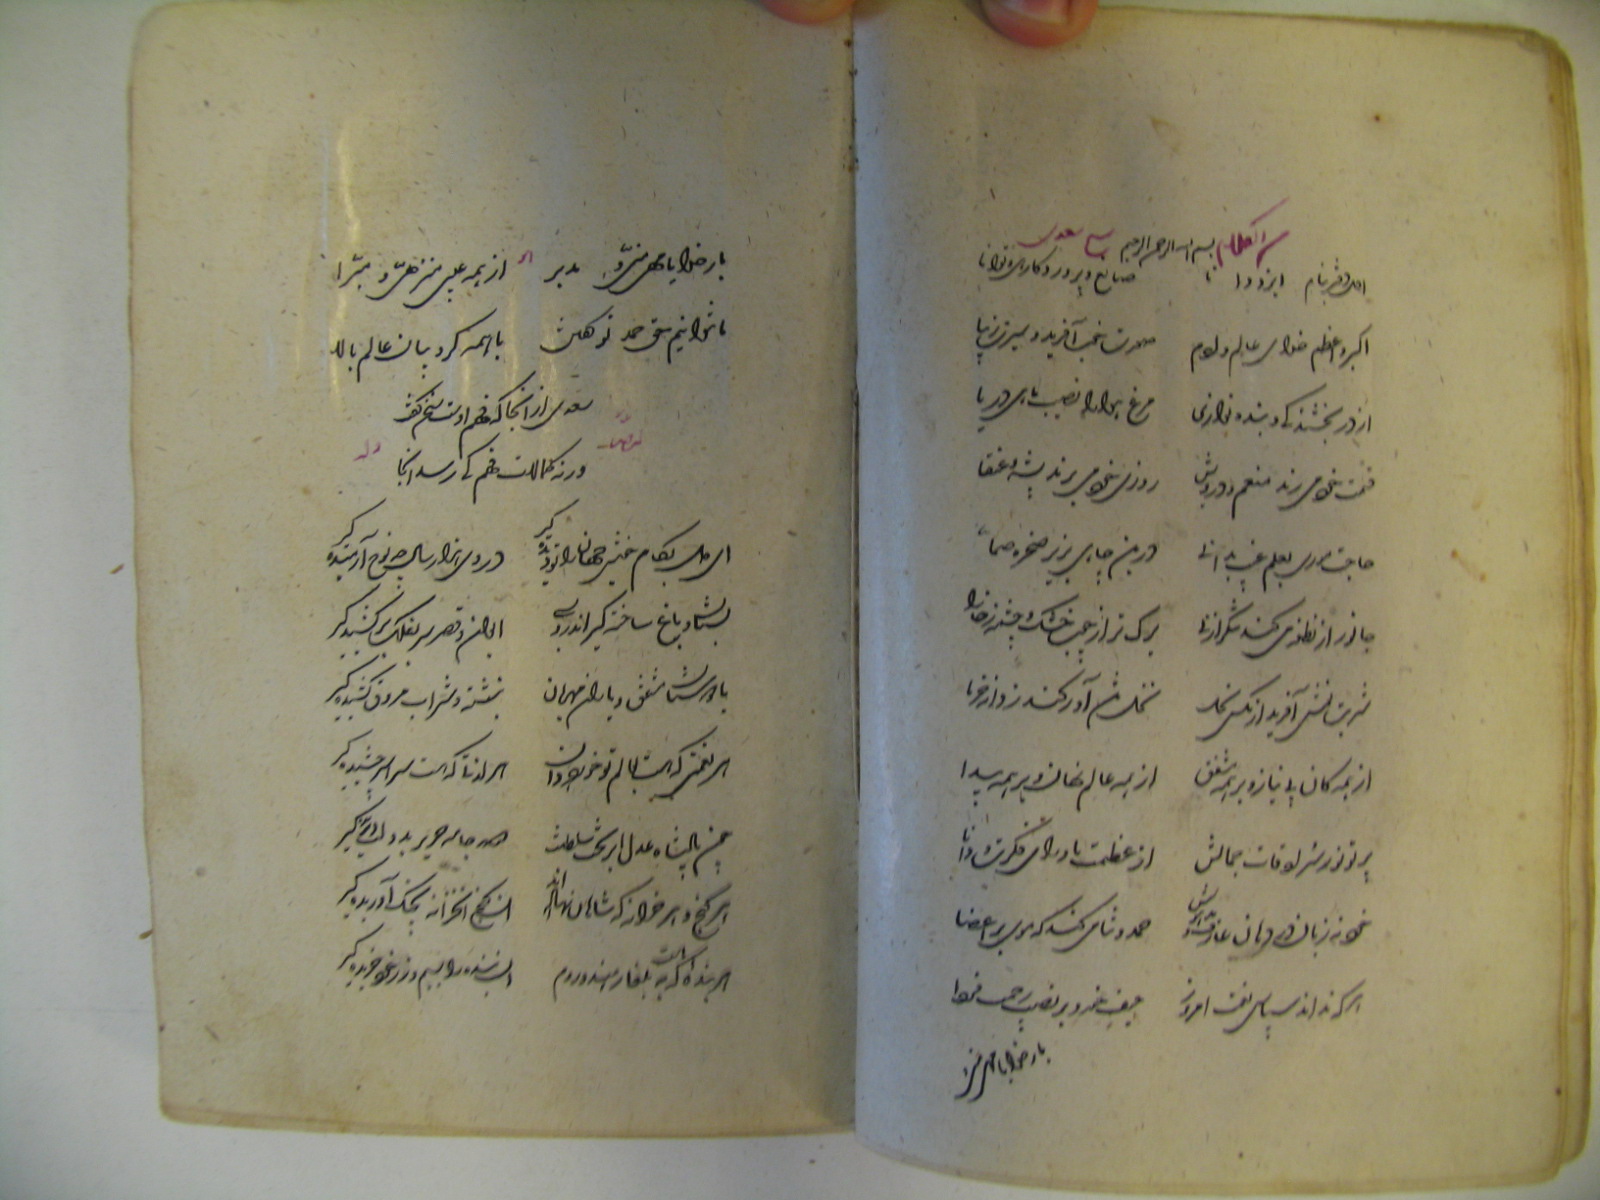 من الکلام بسم الله الرحمن الرحیم سعدی
اول دفتر بنام ایزد دانا صانع پروردگار توانا
اکبر و اعظم خدای عالم و آدم صورت خوب آفرید و سیرت زیبا
از در بخشندگی و بنده نوازی مرغ هوا را نصیب ماهی دریا
قسمت خود می خورند منعم و درویش روزی خود می برند پشه و عنقا
حاجت موری بعلم غیب بداند در بن چاهی بزیر صخره صما
جانور از نطفه می کند شکر از نی برگ تر از چوب خشک و چشمه ز خارا
شربت نوش آفرید از مگس نحل نخل تناور کند ز دانه خرما
از همه کان بی نیاز و بر همه مشفق از همه عالم نهان و بر همه پیدا
پرتو نور سرادقات جمالش از عظمت ماورای فکرت دانا
خود نه زبان در دهان عارف مدهوش حمد و ثنا می کند که موی بر اعضا
هر که نداند سپاس نعمت امروز حیف خورد بر نصیب رحمت فردا
بار خدایا مهیمنی
بار خدایا مهیمنی و مدبر از همه عیبی منزهی و مبرا
ما نتوانیم حق حمد تو گفتن با همه کروبیان عالم بالا
سعدی از انجا که فهم اوست سخن گفت
ورنه کمالات فهم کی رسد انجا
وله
ای دل بکام خویش جهان را تو دیده گیر در وی هزار سال چو نوح آرمیده گیر
بستان و باغ ساخته گیر اندرو بسی ایوان و قصر سر بفلک بر کشیده گیر
با دوستان مشفق و یاران مهربان بنشسته و شراب مروق کشیده گیر
هر نعمتی که هست بعالم تو خورده دان هر لذتی که هست سراسر چشیده گیر
چون پادشاه عدل بر تخت سلطنت صد جامه حریر بدولت دریده گیر
هر گنج و هر خزانه که شاهان نهاده اند آن گنج و آن خزانه بچنگ آوریده گیر
هر بنده که هست ببلغار و هند و روم آن بنده را بسیم و زر خود خریده گیر